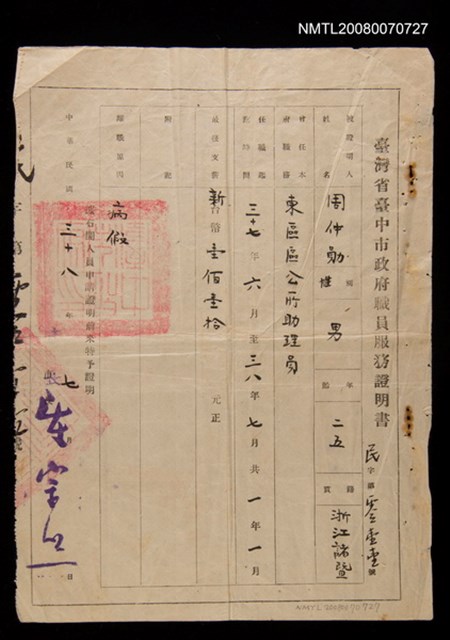 NMTL20080070727
臺灣省臺中市政府職員服務證明書
民字第零壹壹號
被證明人姓名 周仲勛 性別 男 年齡 二五 籍貫 浙江諸暨
曾任本府職務 東區區公所助理員
任職起訖時間 三十七年六月至三八年七月共一年一月
最後支薪 新台幣壹佰壹拾元正
附記
離職原因 病假
右開人員申請證明前來特予證明
中華民國三十八年七月 日
NMTL20080070727